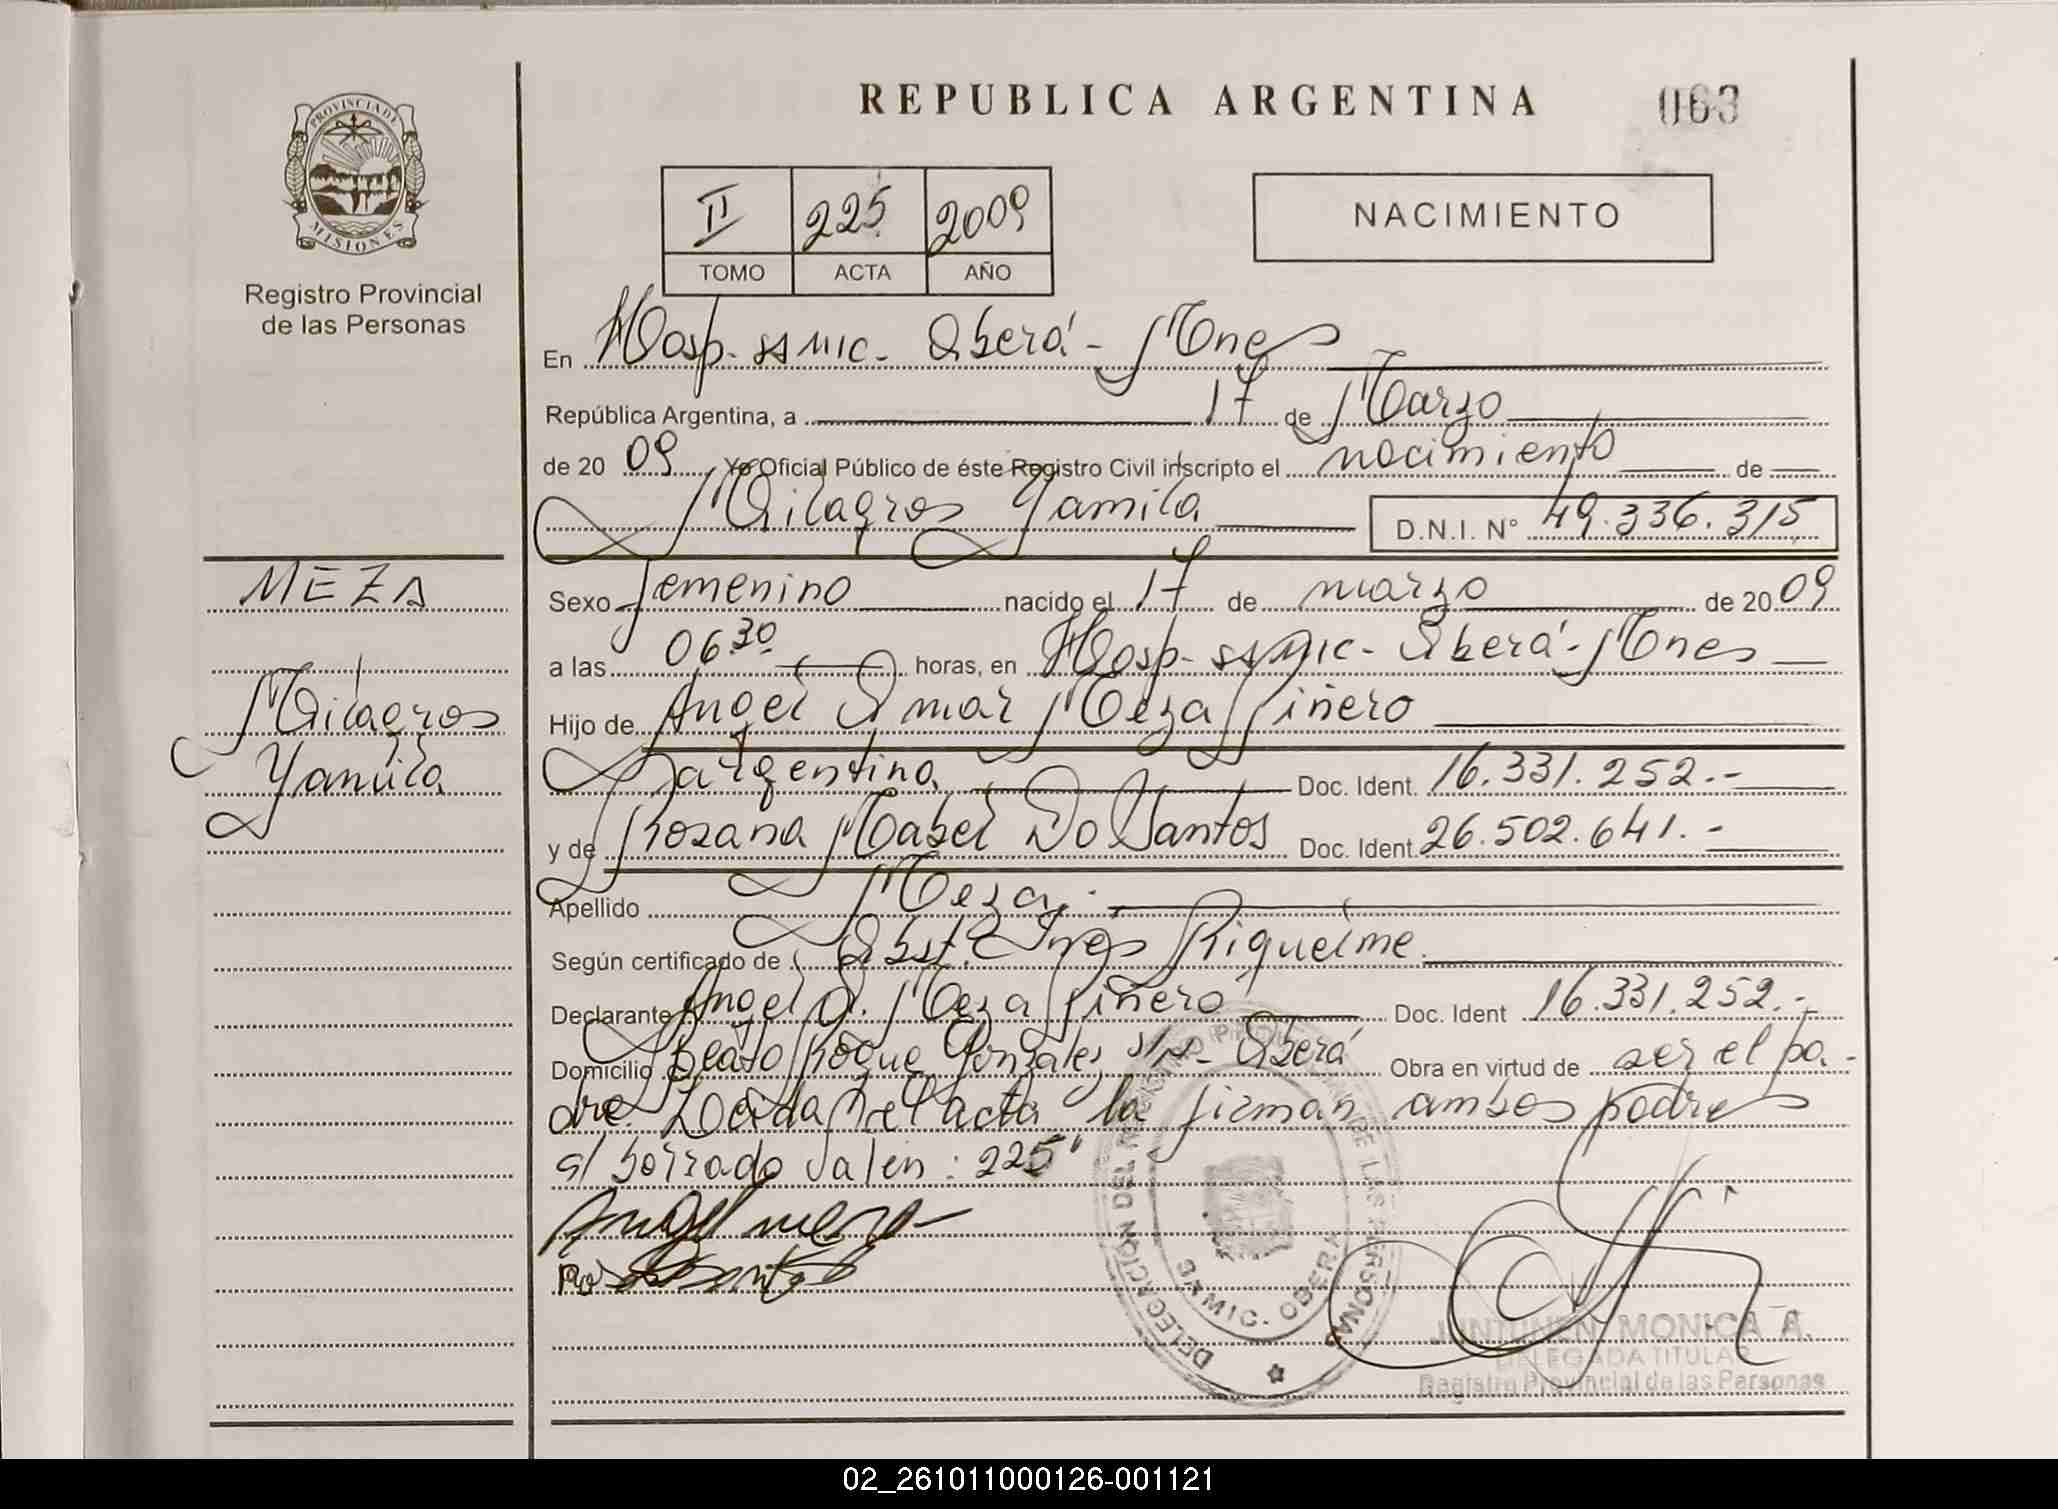 REPUBLICA ARGENTINA
063
PROVINCIA DE MISIONES
Registro Provincial
de las Personas
II 225 2009
TOMO ACTA AÑO
NACIMIENTO
En Hosp. SAMIC - Oberá - Mnes
República Argentina, a 17 de Marzo
de 20 09 Yo Oficial Público de éste Registro Civil inscripto el nacimiento de
Milagros Yamila D.N.I. N° 49.336.315
MEZA
Milagros
Yamila
Sexo femenino nacido el 17 de marzo de 20 09
a las 06.30 horas, en Hosp. SAMIC - Oberá - Mnes
Hijo de Angel Omar Meza Piñero
argentina Doc. Ident. 16.331.252.-
y de Rosana Mabel Do Santos Doc. Ident. 26.502.641.-
Apellido Meza.
Según certificado de Obst. Inés Riquelme.
Declarante Angel O. Meza Piñero Doc. Ident 16.331.252.-
Domicilio Beato Roque Gonzales s/n - Oberá Obra en virtud de ser el pa-
dre. Leida el acta la firman ambos padres
s/ borrado valen: 225"
Angel meza
Santos
DELEGACIÓN DEL REGISTRO PROVINCIAL DE LAS PERSONAS
SAMIC. OBERA
JUNTUNEN MONICA A.
DELEGADA TITULAR
Registro Provincial de las Personas
02_261011000126-001121